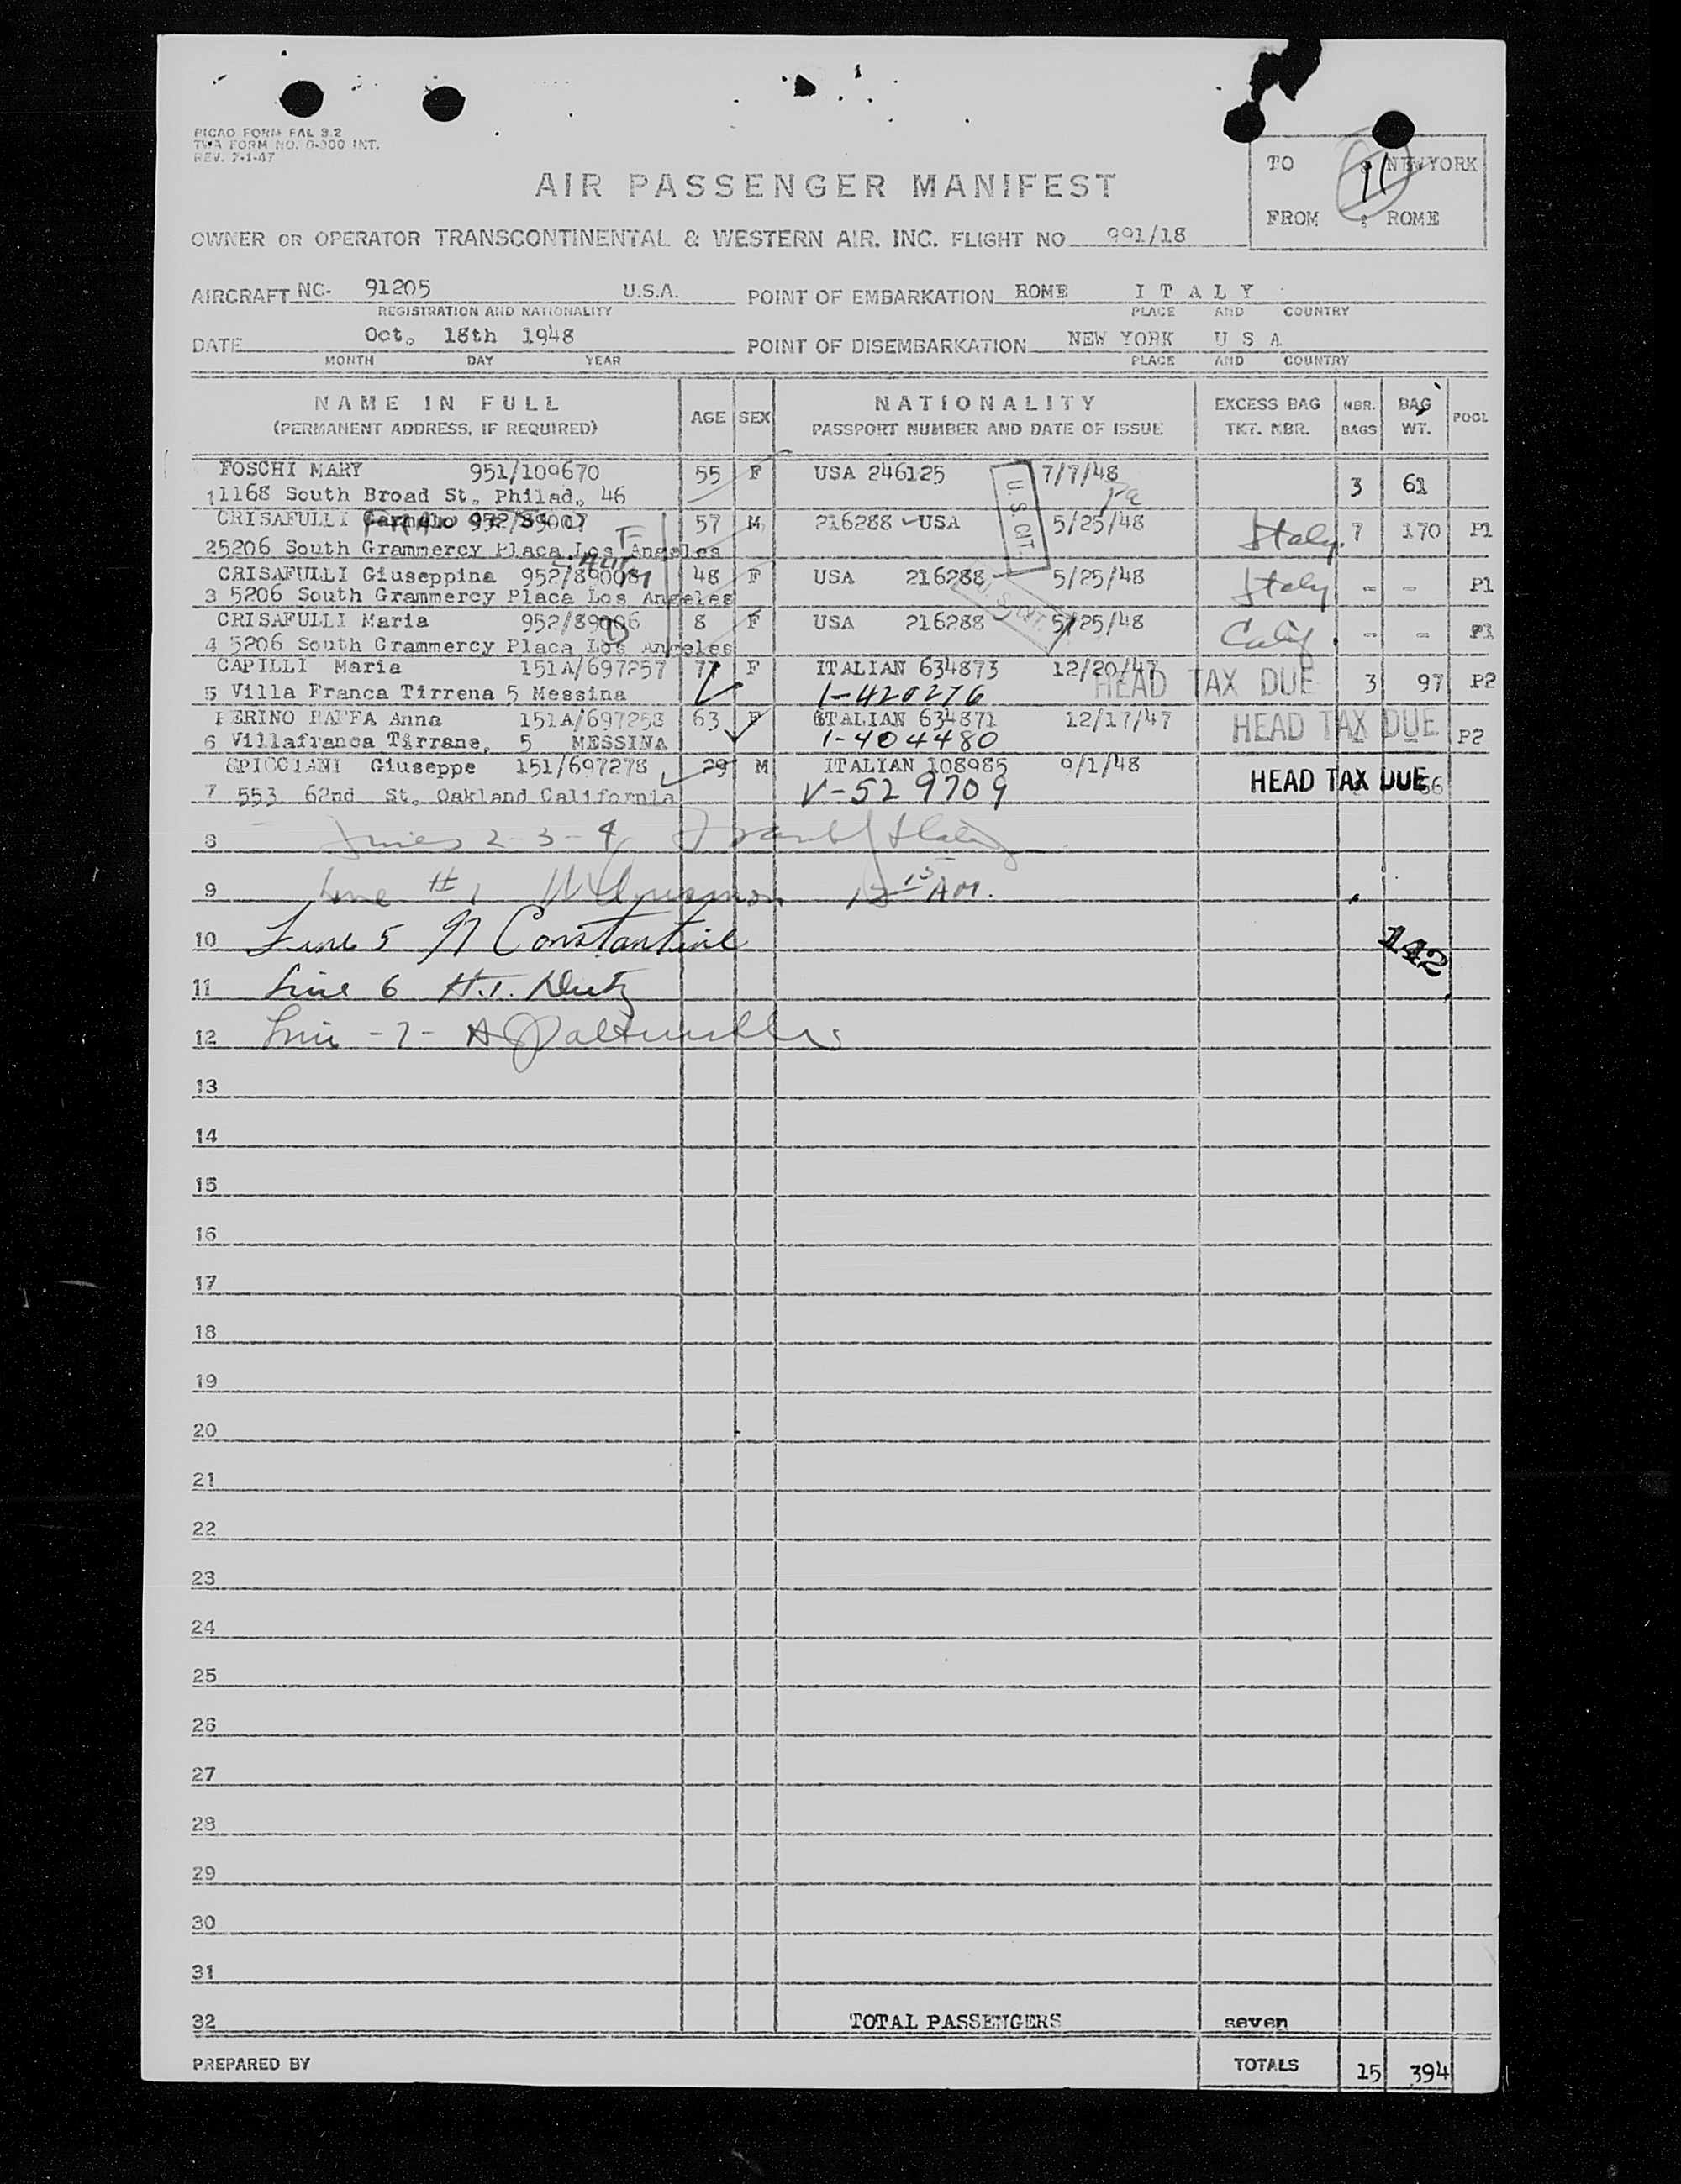 PICAO FORM FAL 3.2
TWA FORM NO. 0-300 INT.
REV. 7-1-47
TO : NEW YORK
FROM : ROME
AIR PASSENGER MANIFEST
OWNER OR OPERATOR TRANSCONTINENTAL & WESTERN AIR. INC. FLIGHT NO 991/18
AIRCRAFT NC- 91205 U.S.A. POINT OF EMBARKATION ROME I T A L Y
REGISTRATION AND NATIONALITY PLACE AND COUNTRY
DATE Oct. 18th 1948 POINT OF DISEMBARKATION NEW YORK U S A
MONTH DAY YEAR PLACE AND COUNTRY
NAME IN FULL AGE SEX NATIONALITY EXCESS BAG NBR. BAG POOL
(PERMANENT ADDRESS, IF REQUIRED) PASSPORT NUMBER AND DATE OF ISSUE TKT. NBR. BAGS WT.
FOSCHI MARY 951/109670 55 F USA 246125 7/7/48 3 61
1 1168 South Broad St. Philad. 46 Pa
CRISAFULLI 57 M 216288 USA U.S. CIT. 5/25/48 Italy 7 170 P1
2 5206 South Grammercy Placa Los Angeles
CRISAFULLI Giuseppina 48 F USA 216288 5/25/48 Italy - - P1
3 5206 South Grammercy Placa Los Angeles
CRISAFULLI Maria 952/89006 8 F USA 216288 U.S. CIT. 5/25/48 Calif. - - P1
4 5206 South Grammercy Placa Los Angeles
CAPILLI Maria 151A/697257 77 F ITALIAN 634873 12/20/47 HEAD TAX DUE 3 97 P2
5 Villa Franca Tirrena 5 Messina 1-420276
PERINO RAFFA Anna 63 F ITALIAN 634871 12/17/47 HEAD TAX DUE P2
6 Villafranca Tirrane, 5 MESSINA 1-404480
SPICCIANI Giuseppe 151/697278 29 M ITALIAN 108985 9/1/48 HEAD TAX DUE 66
7 553 62nd St. Oakland California V-529709
8 Lines 2-3-4
9 Line #1 12 15 AM.
10 Line 5 N Constantine 142
11 Line 6 H.I.
12 Line -7-
13
14
15
16
17
18
19
20
21
22
23
24
25
26
27
28
29
30
31
32 TOTAL PASSENGERS seven
PREPARED BY TOTALS 15 394